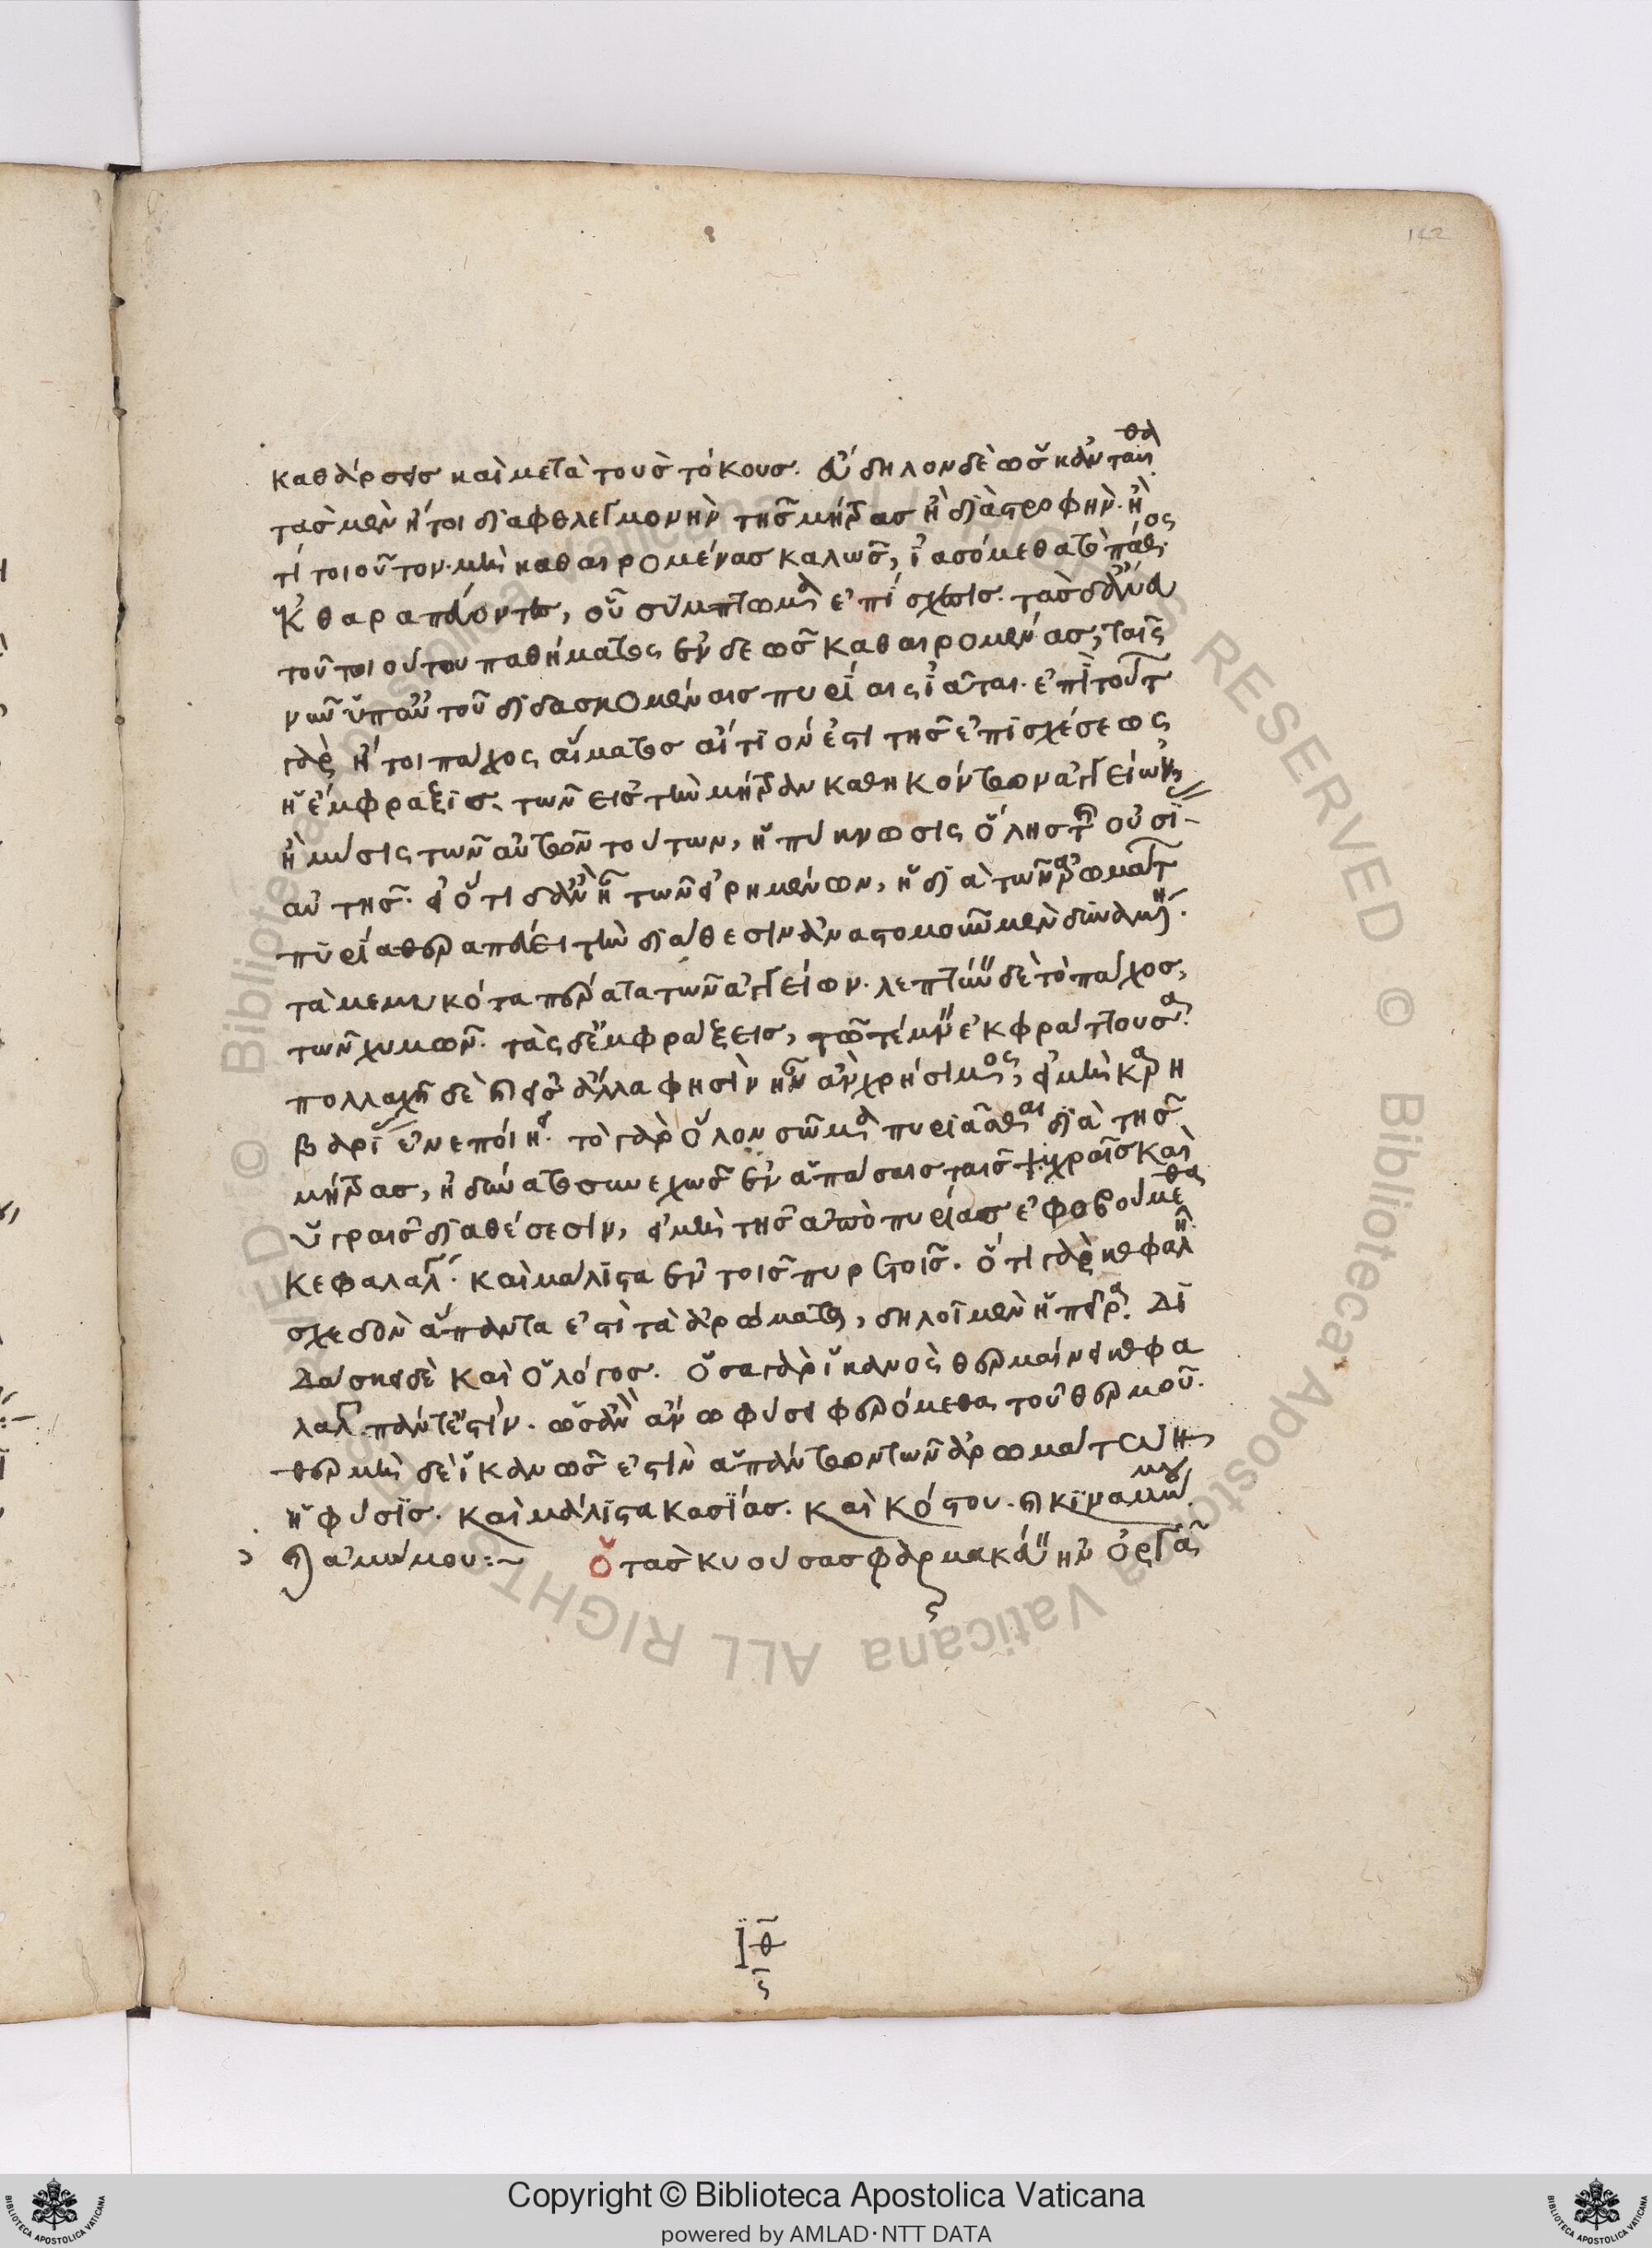 162
καθάρσεις καὶ μετὰ τοὺς τόκους. εὔδηλον δὲ ὡς κἀνταῦθα
τὰς μὲν ἤτοι διὰ φλεγμονὴν τῆς μήτρας ἢ διαστροφὴν. ἤ
τι τοιοῦτον μὴ καθαιρομένας καλῶς, ἰασόμεθα τὸ πάθος
θαραπεύοντες, οὗ σύμπτωμα ἐπίσχεσις. τὰς δ' ἄνευ
τοῦ τοιούτου παθήματος ἐνδεῶς καθαιρομένας, ταῖς
νῦν ὑπ' αὐτοῦ διδασκομέναις πυρίαις ἰᾶται. ἐπὶ τούτ
γὰρ ἤτοι πάχος αἵματος αἴτιόν ἐστι τῆς ἐπισχέσεως
ἢ ἔμφραξις. τῶν εἰς τὴν μήτραν καθηκόντων ἀγγείων
ἢ μύσις τῶν αὐτῶν τούτων, ἢ πύκνωσις ὅλης τῆς οὐσί-
αὐτῆς. ὅ τι δ' ἂν ᾖ τῶν εἰρημένων, ἡ διὰ τῶν ἀρωμάτ
πυρία θεραπεύει τὴν διάθεσιν ἀναστομοῦν μὲν δυναμένη.
τὰ μεμυκότα πέρατα τῶν ἀγγείων. λεπτύνειν δὲ τὸ πάχος,
τῶν χυμῶν. τὰς δ' ἐμφράξεις, τῷ τέμνειν ἐκφράττουσα.
πολλαχῇ δὲ καὶ εἰς ἄλλα φησὶν ἦν ἂν χρήσιμος, εἰ μὴ καρη
βαρίην ἐνεποίει. τὸ γὰρ ὅλον σῶμα πυριᾶσθαι διὰ τῆς
μήτρας, ἠδύνατο συνεχῶς ἐν ἁπάσαις ταῖς ψυχραῖς καὶ
ὑγραῖς διαθέσεσιν, εἰ μὴ τῆς ἀπὸ πυρίας ἐφοβούμεθα
κεφαλαλγ. καὶ μάλιστα ἐν τοῖς πυρετοῖς. ὅτι γὰρ κεφαλαλγῆ
σχεδὸν ἅπαντα ἐστὶ τὰ ἀρώματα, δηλοῖ μὲν ἡ πεῖρα. δι
δάσκει δὲ καὶ ὁ λόγος. ὅσα γὰρ ἱκανῶς θερμαίνει κεφα
λαλγ πάντ' ἐστίν. ὡς ἂν ἄνω φύσει φερόμεθα τοῦ θερμοῦ.
θερμὴ δὲ ἱκανῶς ἐστὶν ἁπάντων τῶν ἀρωμάτων
ἡ φύσις. καὶ μάλιστα κασίας. καὶ κόστου. καὶ κιναμώμου
καὶ ἀμώμου:~ ὃ τὰς κυούσας φαρμακεύειν ἢν ὀργᾷ
ιθ
ς
Copyright © Biblioteca Apostolica Vaticana
powered by AMLAD·NTT DATA